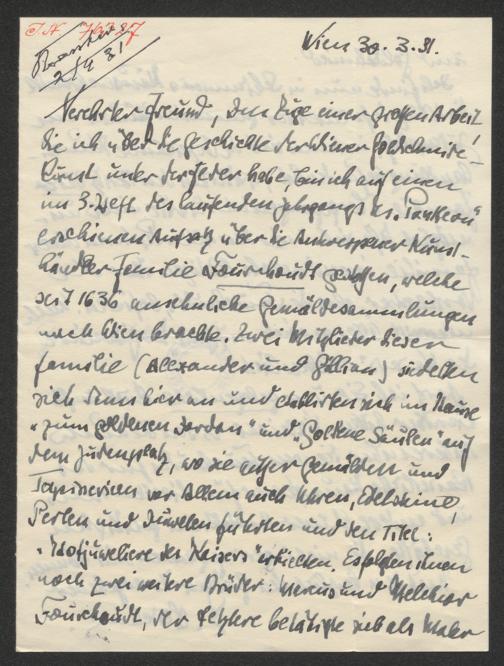 J.N. 76727
2/4 31
Wien 30. 3. 31.
Verehrter Freund, Im Zuge einer großen Arbeit!
die ich über die Geschichte der Wiener Goldschmiede-
kunst unter der Feder habe, bin ich auf einen
im 3. Heft des laufenden Jahrgangs des "Pantheon"
erschienen Aufsatz über die Antwerpener Kunst-
händler Familie Fourchoudt gestoßen, welche
seit 1636 ansehnliche Gemäldesammlungen
nach Wien brachte. Zwei Mitglieder dieser
Familie (Alexander und Gillian) siedelten
sich dann hier an und etablirten sich im Hause
"zum goldenen Jordan" und "Goldene Säulen" auf
dem Judenplatz, wo sie außer Gemälden und
Tapisserien vor Allem auch Uhren, Edelsteine,
Perlen und Juwelen führten und den Titel:
"Hofjuweliere des Kaisers" erhielten. Es folgten ihnen
noch zwei weitere Brüder: Marcus und Melchior
Fourchoudt, der letztere betätigte sich als Maler